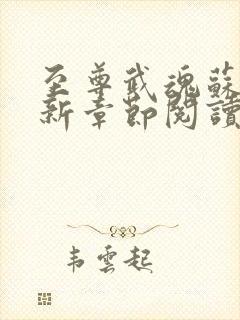 至尊武魂蘇
新章節閱讀
韦雲起